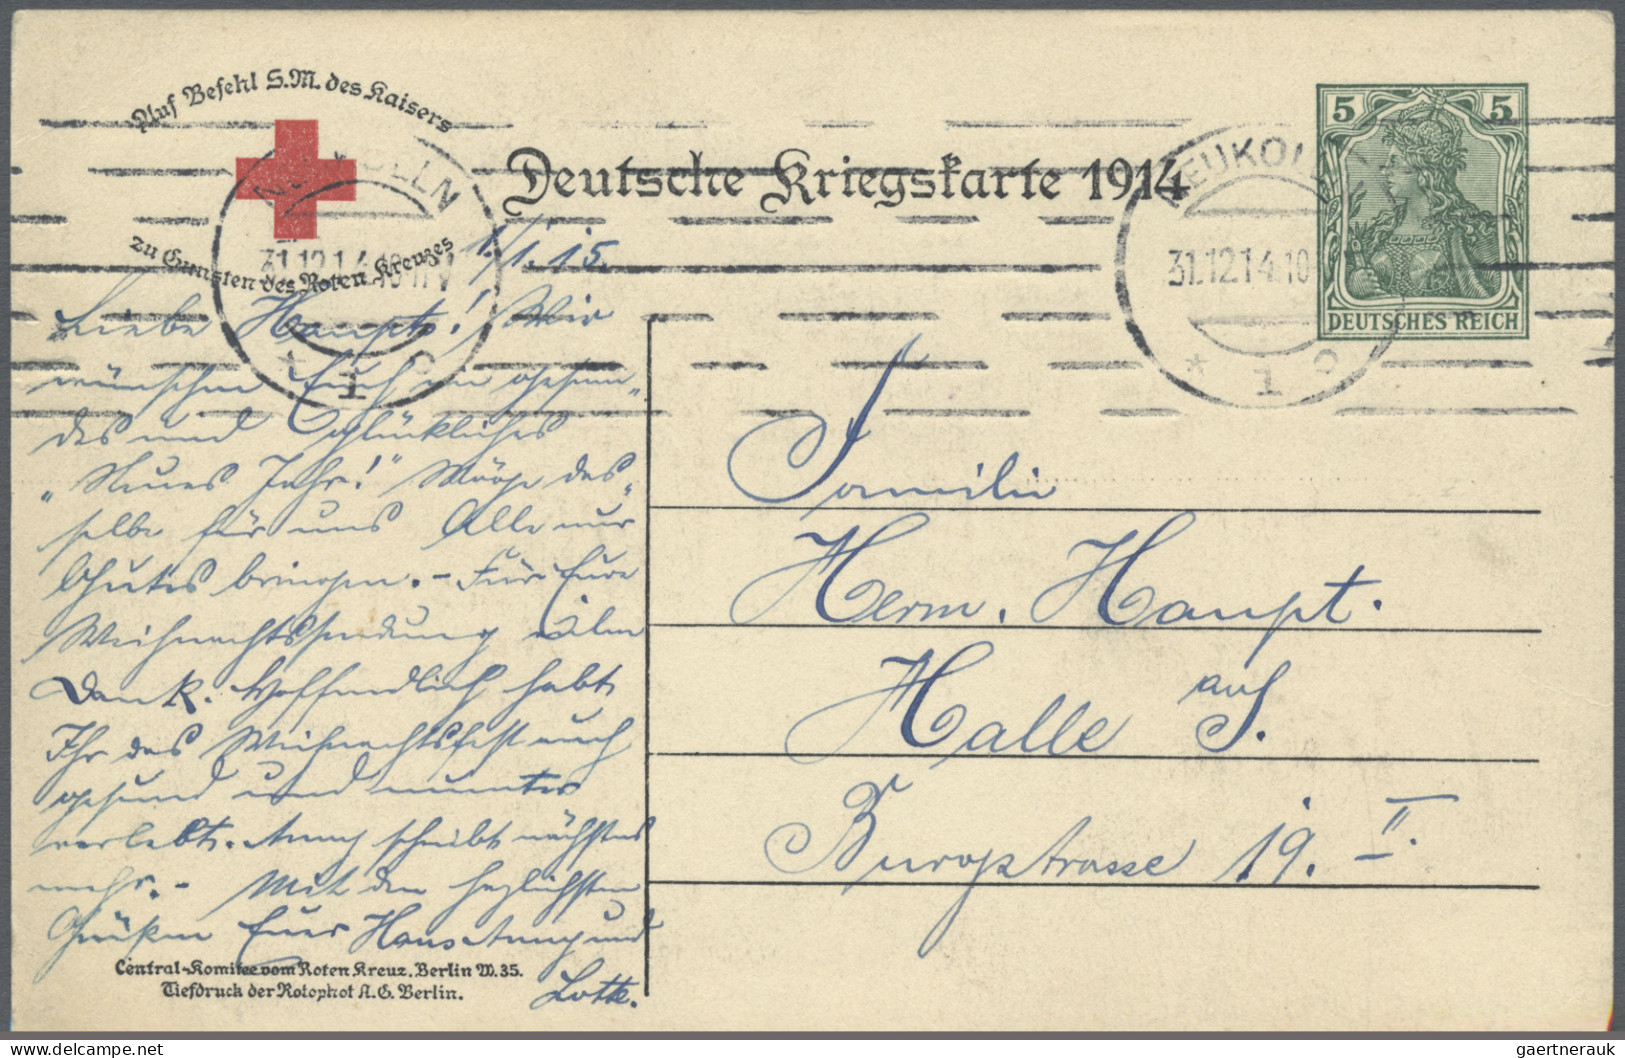 Auf Befehl S.M. des Kaisers
zu Gunsten des Roten Kreuzes
Deutsche Kriegskarte 1914
5 5
DEUTSCHES REICH
NEUKÖLLN
31.12.14.10-11V
* 1 c
NEUKÖLLN
31.12.14.10
* 1 c
1./1.15.
Liebe Haupts! Wir
wünschen Euch ein gesun-
des und glückliches
"Neues Jahr!" Möge das-
selbe für uns Alle nur
Gutes bringen. - Für Eure
Weihnachtssendung vielen
Dank. Hoffendlich habt
Ihr das Weihnachtsfest auch
gesund und munter
verlebt. Anny schreibt nächstens
mehr. - Mit den herzlichsten
Grüßen Euer Hans Anny und
Lotte.
Familie
Herm. Haupt.
Halle a/S.
Burgstrasse 19. II.
Central-Komitee vom Roten Kreuz. Berlin W. 35.
Tiefdruck der Rotophot A.G. Berlin.
www.delcampe.net
gaertnerauk